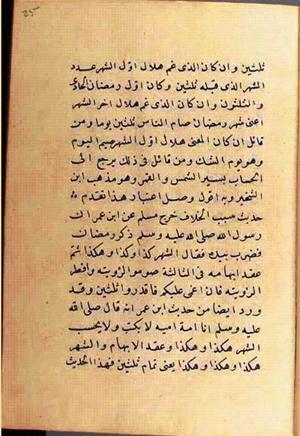 ثلثين وان كان الذى غم هلال اول الشهر عدد
الشهر الذى قبله ثلثين وكان اول رمضان الحادى
والثلثون وان كان الذى غم هلال اخر الشهر
اعنى شهر رمضان صام الناس ثلثين يوما ومن
قائل ان كان المغمى هلال اول الشهر صيم اليوم
وهو يوم الشك ومن قائل فى ذلك يرجع الى
الحساب بتسيير الشمس والقمر وهو مذهب ابن
الشخير وبه اقول وصل اعتبار هذا تقدم
حديث سبب الخلاف خرج مسلم عن ابن عمر ان
رسول الله صلى الله عليه وسلم ذكر رمضان
فضرب بيديه فقال الشهر هكذا وهكذا وهكذا ثم
عقد ابهامه فى الثالثة صوموا لرؤيته وافطروا
لرؤيته فان اغمى عليكم فاقدروا ثلثين وقد
ورد ايضا من حديث ابن عمر انه قال صلى الله
عليه وسلم انا امة امية لا نكتب ولا نحسب
الشهر هكذا وهكذا وهكذا وعقد الابهام والشهر
هكذا وهكذا وهكذا يعنى تمام ثلثين فهذا الحديث